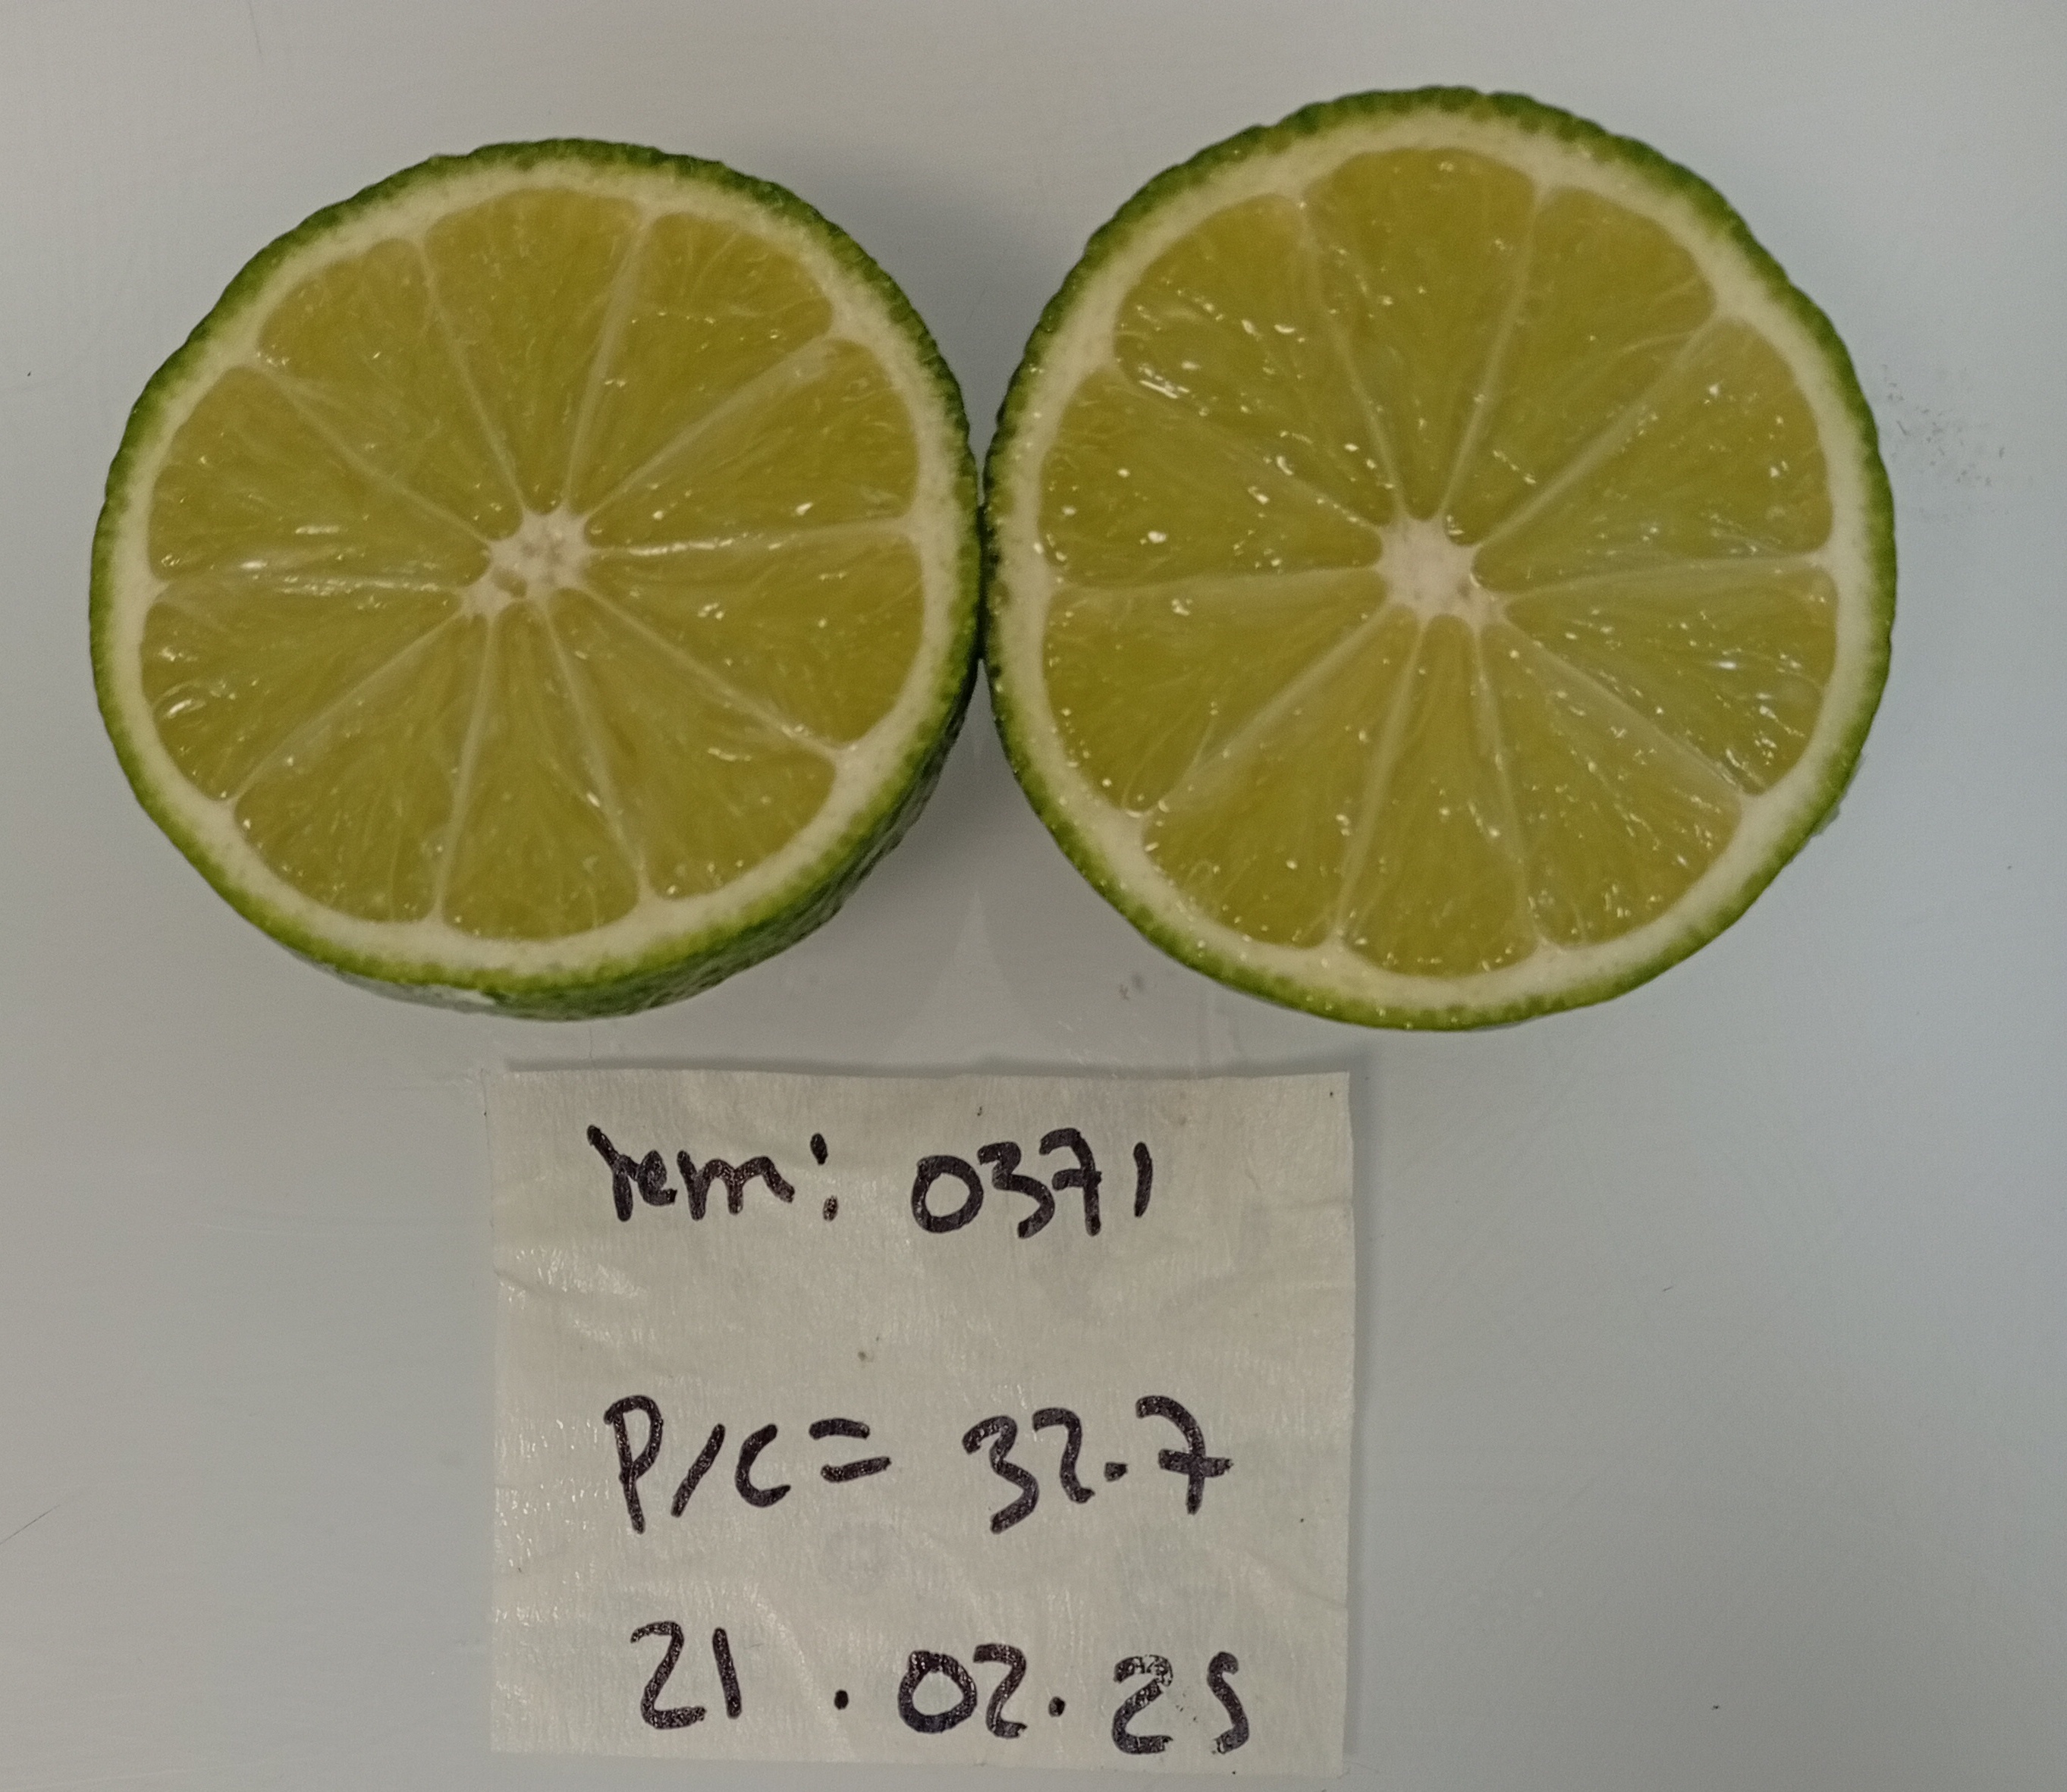 rem: 0371
P/C = 32.7
21.02.25